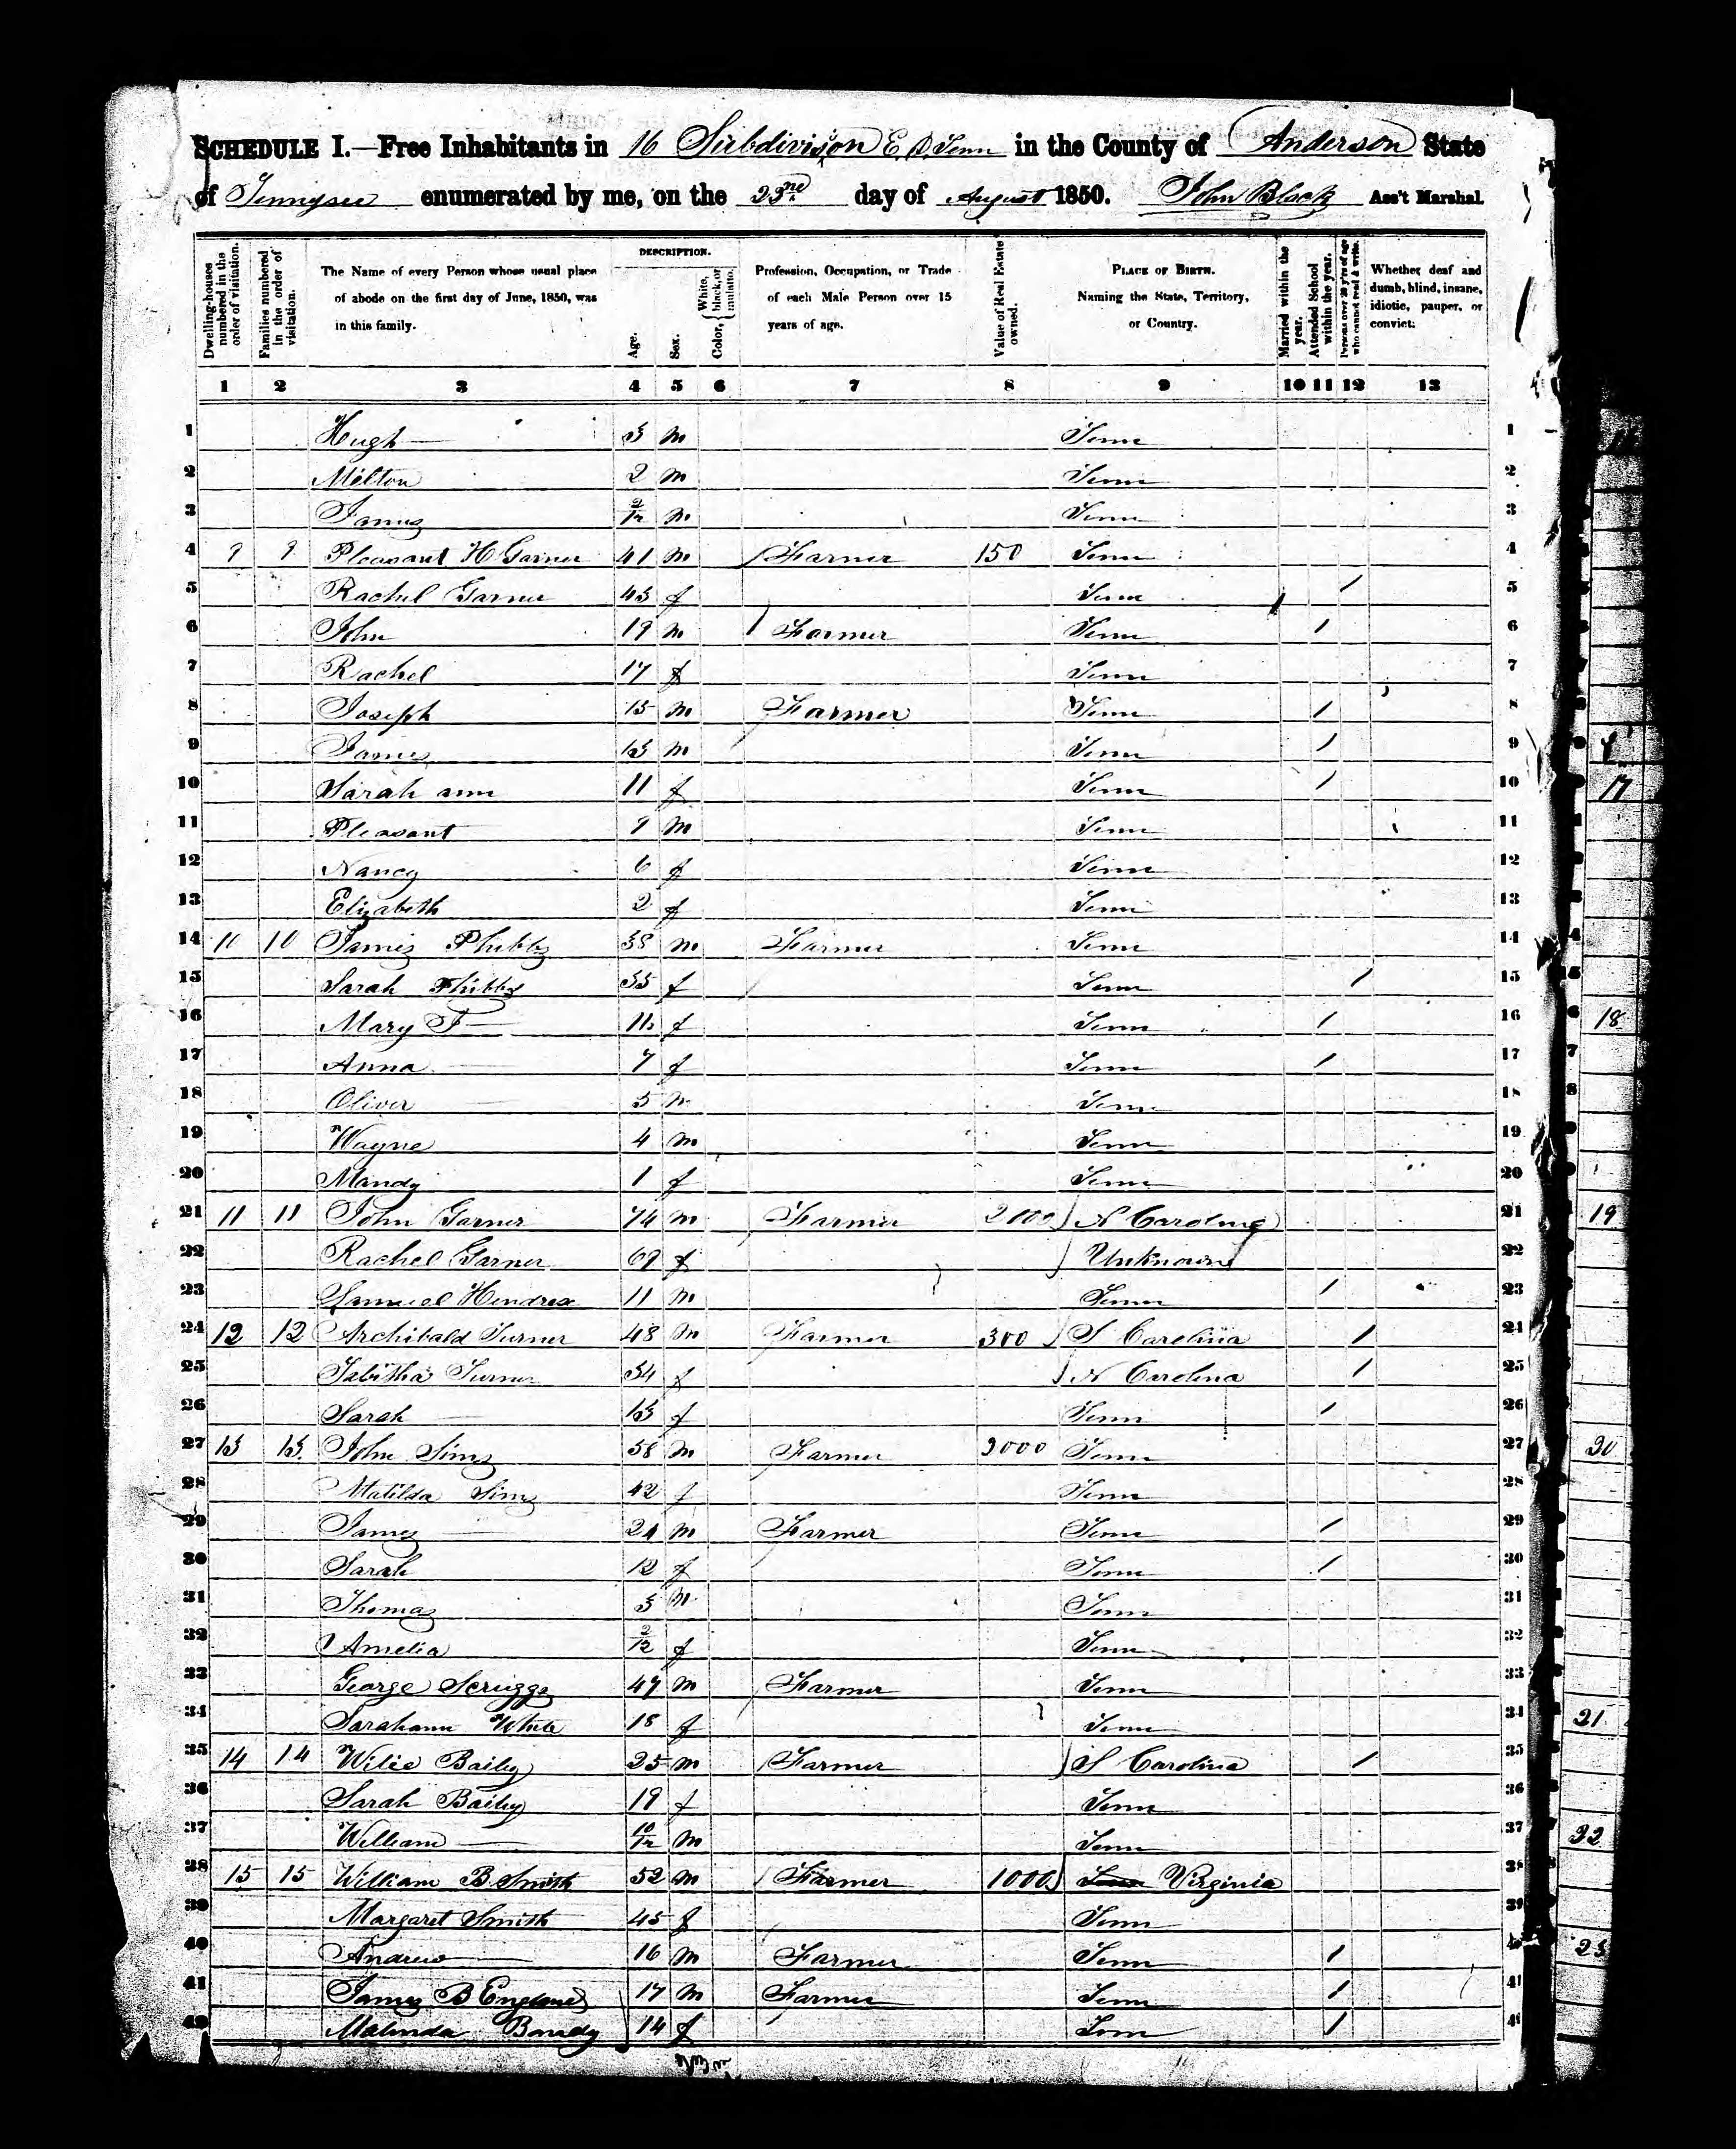 SCHEDULE I.—Free Inhabitants in 16 Subdivision E. D. Tenn in the County of Anderson State
of Tennysee enumerated by me, on the 23nd day of August 1850. John Black Ass't Marshal.
Dwelling-houses numbered in the order of visitation.
Families numbered in the order of visitation.
The Name of every Person whose usual place of abode on the first day of June, 1850, was in this family.
DESCRIPTION.
Age.
Sex.
Color, White, black, or mulatto.
Profession, Occupation, or Trade of each Male Person over 15 years of age.
Value of Real Estate owned.
PLACE OF BIRTH. Naming the State, Territory, or Country.
Married within the year.
Attended School within the year.
Persons over 20 y'rs of age who cannot read & write.
Whether deaf and dumb, blind, insane, idiotic, pauper, or convict.
1 2 3 4 5 6 7 8 9 10 11 12 13
1 Hugh 3 m Tenn 1
2 Milton 2 m Tenn 2
3 James 2/12 m Tenn 3
4 9 9 Pleasant H Garner 41 m Farmer 150 Tenn 4
5 Rachel Garner 43 f Tenn / 5
6 John 19 m Farmer Tenn / 6
7 Rachel 17 f Tenn 7
8 Joseph 15 m Farmer Tenn / 8
9 James 13 m Tenn / 9
10 Sarah ann 11 f Tenn / 10
11 Pleasant 9 m Tenn 11
12 Nancy 6 f Tenn 12
13 Elizabeth 2 f Tenn 13
14 10 10 James Phibbs 38 m Farmer Tenn 14
15 Sarah Phibbs 35 f Tenn / 15
16 Mary F 11 f Tenn / 16
17 Anna 7 f Tenn / 17
18 Oliver 5 m Tenn 18
19 Wayne 4 m Tenn 19
20 Mandy 1 f Tenn 20
21 11 11 John Garner 74 m Farmer 2100 N Carolina 21
22 Rachel Garner 69 f Unknown 22
23 Samuel Hendrex 11 m Tenn / 23
24 12 12 Archibald Turner 48 m Farmer 300 S Carolina / 24
25 Tabitha Turner 34 f N Carolina / 25
26 Sarah 13 f Tenn / 26
27 13 13 John Sims 58 m Farmer 2000 Tenn 27
28 Matilda Sims 42 f Tenn 28
29 James 24 m Farmer Tenn / 29
30 Sarah 12 f Tenn / 30
31 Thomas 3 m Tenn 31
32 Amelia 2/12 f Tenn 32
33 George Scruggs 49 m Farmer Tenn 33
34 Sarahann White 18 f Tenn 34
35 14 14 Wilie Baily 25 m Farmer S Carolina / 35
36 Sarah Baily 19 f Tenn 36
37 William 10/12 m Tenn 37
38 15 15 William B Smith 52 m Farmer 1000 Tenn Virginia 38
39 Margaret Smith 45 f Tenn 39
40 Andrew 16 m Farmer Tenn / 40
41 James B England 17 m Farmer Tenn / 41
42 Malinda Bondy 14 f Tenn /
17
18
19
20
21
22
23